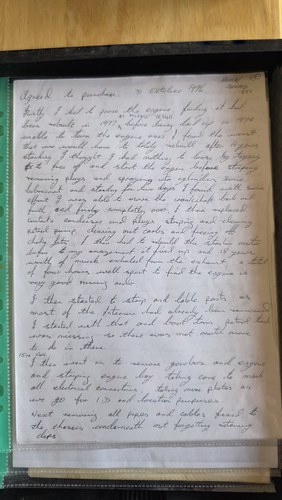 Agreed to purchase 31 October 1996
Firstly I had to prove the engine, finding it had
been rebuilt in 1977 before being laid up in 1978
unable to turn the engine over I feared the worst
that we would have to total rebuild after 18 years
standing I thought I had nothing to lose by trying
to free up and start the engine before stripping
removing plugs and spraying in cylinders
lubricant and standing for two days I found with some
effort I was able to move the crankshaft back and
forth and finely completely over, I then replaced
contacts condensor and plugs stripping and cleaning
petrol pump, cleaning out carbs and freeing off
choke jets. I then had to rebuild the starter motor
before to my amazement it fired up and 18 years
worth of muck exhaled from the exhaust. A total
of four hours well spent to find the engine in
very good running order
I then started to strip and lable parts as
most of the interior had already been removed
I started with that and boot items, petrol tank
was missing so there was not much more
to do in there.
I then went on to remove gearbox and engine
and stripping engine bay taking care to mark
all electrical connections, taking more photos as
we go for I.D and location purposes
Next removing all pipes and cables fixed to
the chassis underneath not forgetting retaining
clips